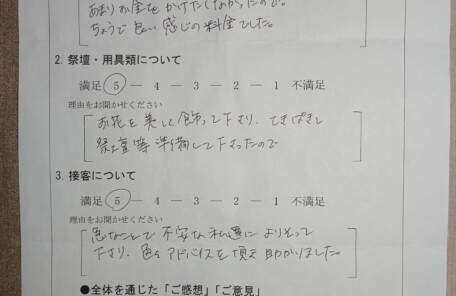 あまりお金をかけたくなかったので。
ちょうど良い感じの料金でした。
2. 祭壇・用具類について
満足 5 － 4 － 3 － 2 － 1 不満足
理由をお聞かせください
お花を美しく飾って下さり、てきぱきと
祭壇等準備して下さったので
3. 接客について
満足 5 － 4 － 3 － 2 － 1 不満足
理由をお聞かせください
急なことで不安な私達によりそって
下さり、色々アドバイスを頂き助かりました。
●全体を通じた「ご感想」「ご意見」